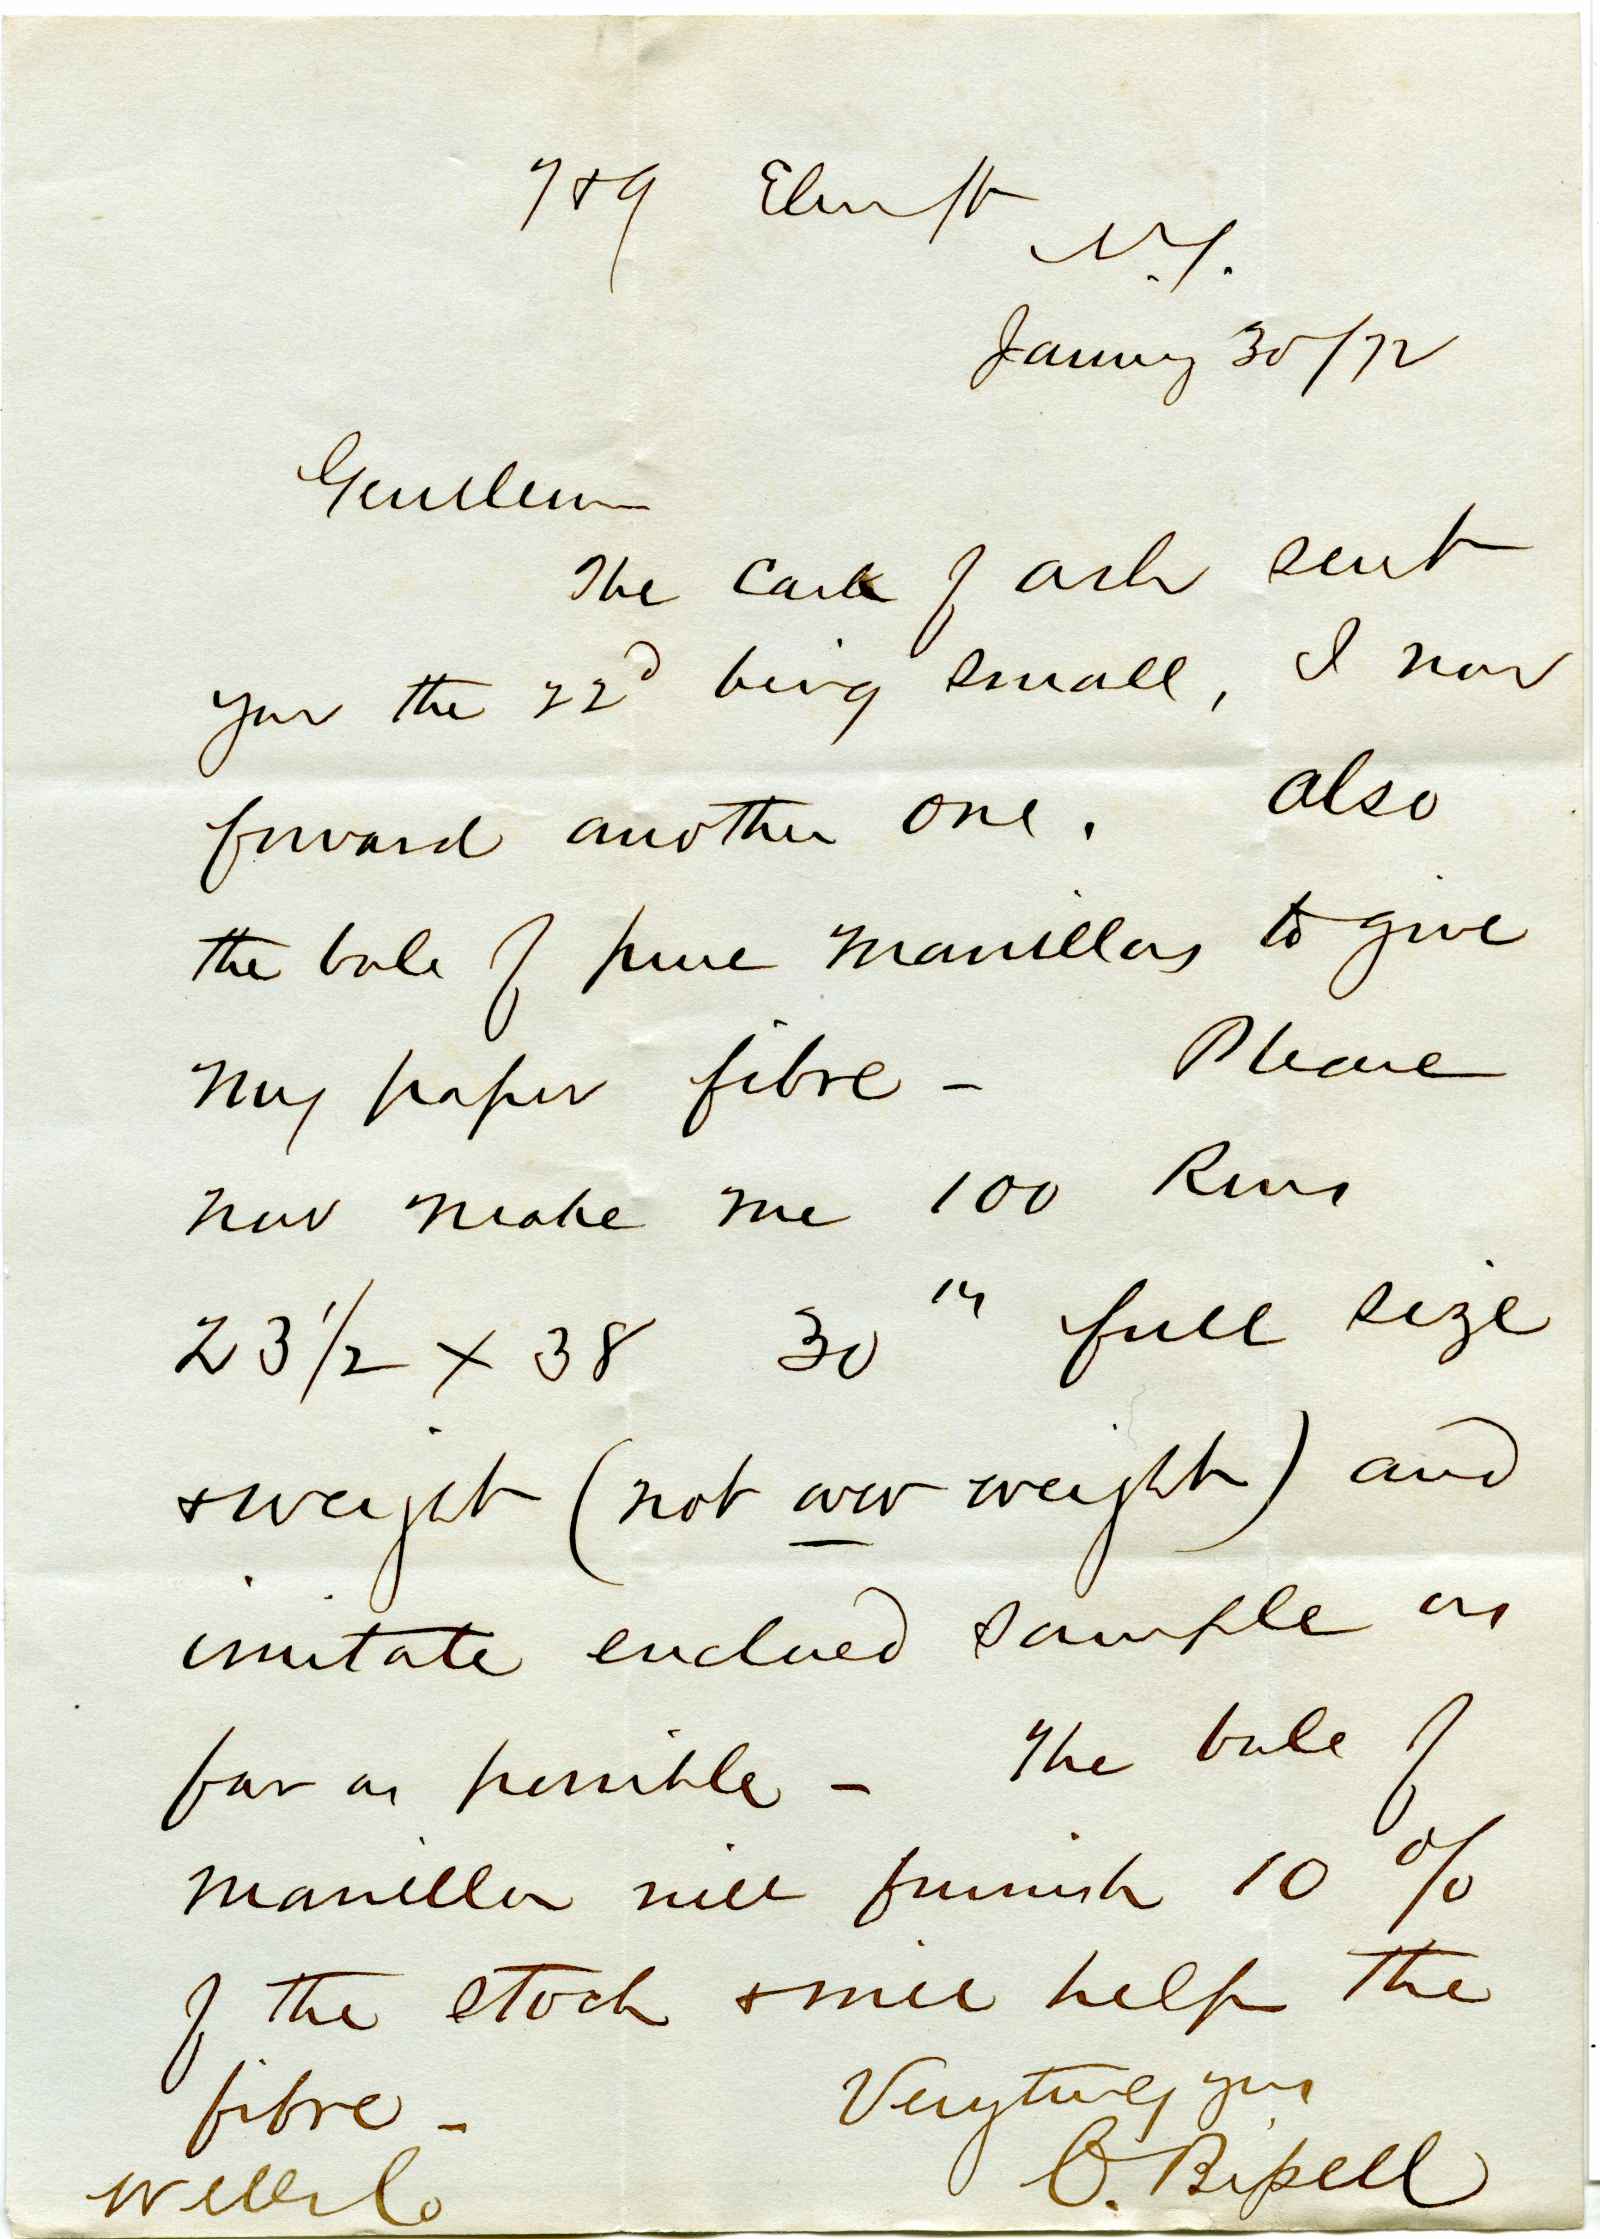 7 & 9 Elm St
N.Y.
January 30/72
Gentlemen
The Cask of ash sent
you the 22d being small, I now
forward another one. Also
the bale of pure Manillas to give
my paper fibre -  Please
now make me 100 Rms
23 1/2 x 38 30 full size
& weight (not over weight) and
imitate enclosed sample as
far as possible - The bale of
Manilla will furnish 10 %
of the stock & will help the
fibre -
Very truly yours
O. Bissell